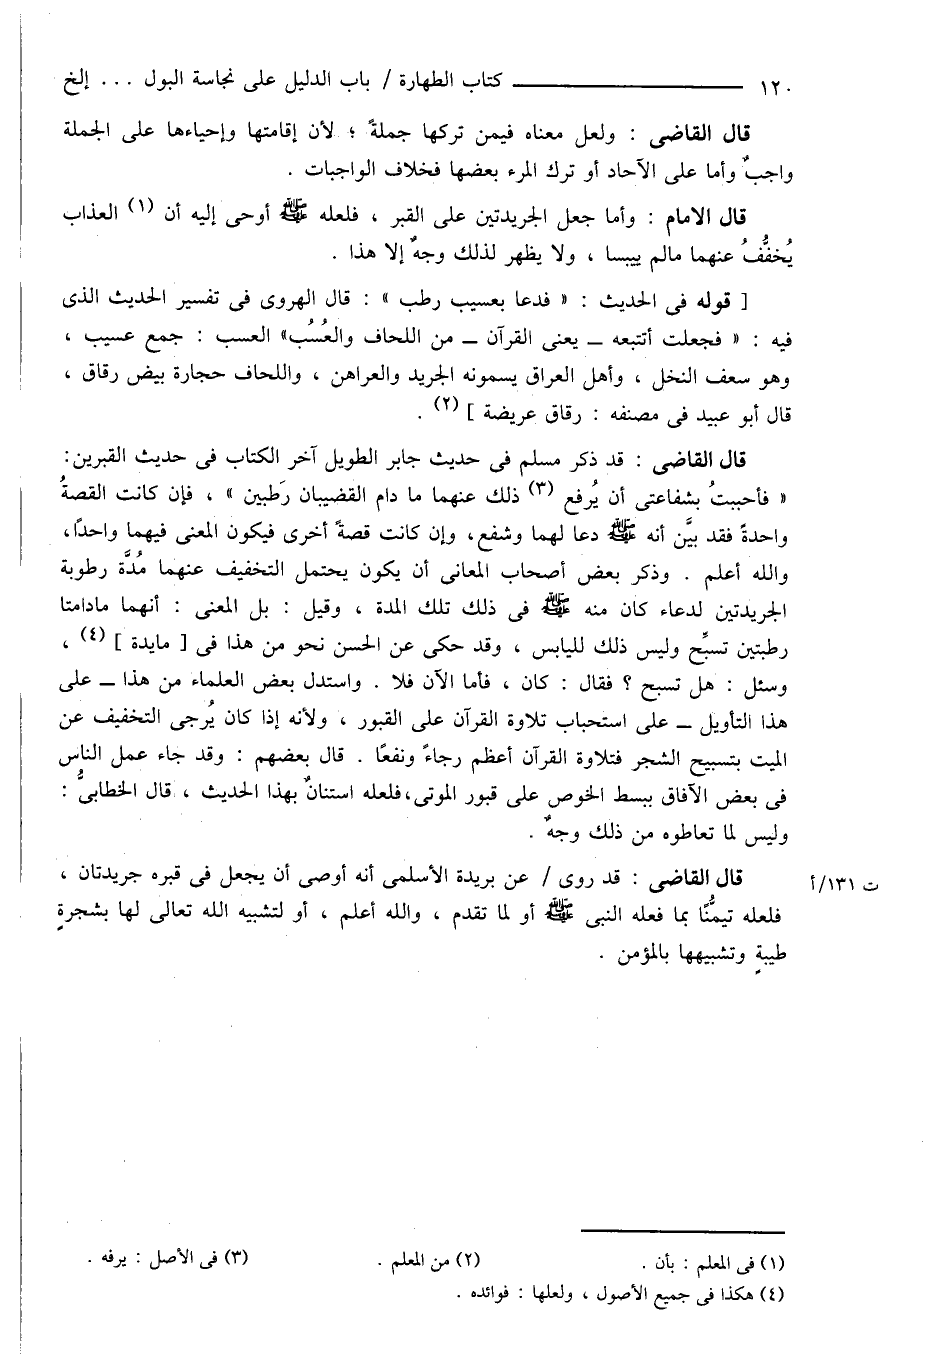 ١٢٠ ــــــــــــــــ كتاب الطهارة / باب الدليل على نجاسة البول ... إلخ
قال القاضى : ولعل معناه فيمن تركها جملةً ؛ لأن إقامتها وإحياءها على الجملة
واجبٌ وأما على الآحاد أو ترك المرء بعضها فخلاف الواجبات .
قال الامام : وأما جعل الجريدتين على القبر ، فلعله ﷺ أوحى إليه أن (١) العذاب
يُخفَّفُ عنهما مالم ييبسا ، ولا يظهر لذلك وجهٌ إلا هذا .
[ قوله فى الحديث : « فدعا بعسيب رطب » : قال الهروى فى تفسير الحديث الذى
فيه : « فجعلت أتتبعه ــ يعنى القرآن ــ من اللحاف والعُسُب» العسب : جمع عسيب ،
وهو سعف النخل ، وأهل العراق يسمونه الجريد والعراهن ، واللحاف حجارة بيض رقاق ،
قال أبو عبيد فى مصنفه : رقاق عريضة ] (٢) .
قال القاضى : قد ذكر مسلم فى حديث جابر الطويل آخر الكتاب فى حديث القبرين:
« فأحببتُ بشفاعتى أن يُرفع (٣) ذلك عنهما ما دام القضيبان رَطبين » ، فإن كانت القصةُ
واحدةً فقد بيَّن أنه ﷺ دعا لهما وشفع، وإن كانت قصةً أخرى فيكون المعنى فيهما واحدًا،
والله أعلم . وذكر بعض أصحاب المعانى أن يكون يحتمل التخفيف عنهما مُدَّة رطوبة
الجريدتين لدعاء كان منه ﷺ فى ذلك تلك المدة ، وقيل : بل المعنى : أنهما مادامتا
رطبتين تسبِّح وليس ذلك لليابس ، وقد حكى عن الحسن نحو من هذا فى [ مايدة ] (٤) ،
وسئل : هل تسبح ؟ فقال : كان ، فأما الآن فلا . واستدل بعض العلماء من هذا ــ على
هذا التأويل ــ على استحباب تلاوة القرآن على القبور ، ولأنه إذا كان يُرجى التخفيف عن
الميت بتسبيح الشجر فتلاوة القرآن أعظم رجاءً ونفعًا . قال بعضهم : وقد جاء عمل الناس
فى بعض الآفاق ببسط الخوص على قبور الموتى،فلعله استنانٌ بهذا الحديث ، قال الخطابىُّ :
وليس لما تعاطوه من ذلك وجهٌ .
قال القاضى : قد روى / عن بريدة الأسلمى أنه أوصى أن يجعل فى قبره جريدتان ،
ت ١٣١/أ
فلعله تيمنُّا بما فعله النبى ﷺ أو لما تقدم ، والله أعلم ، أو لتشبيه الله تعالى لها بشجرةٍ
طيبةٍ وتشبيهها بالمؤمن .
(١) فى المعلم : بأن . (٢) من المعلم . (٣) فى الأصل : يرفه .
(٤) هكذا فى جميع الأصول ، ولعلها : فوائده .